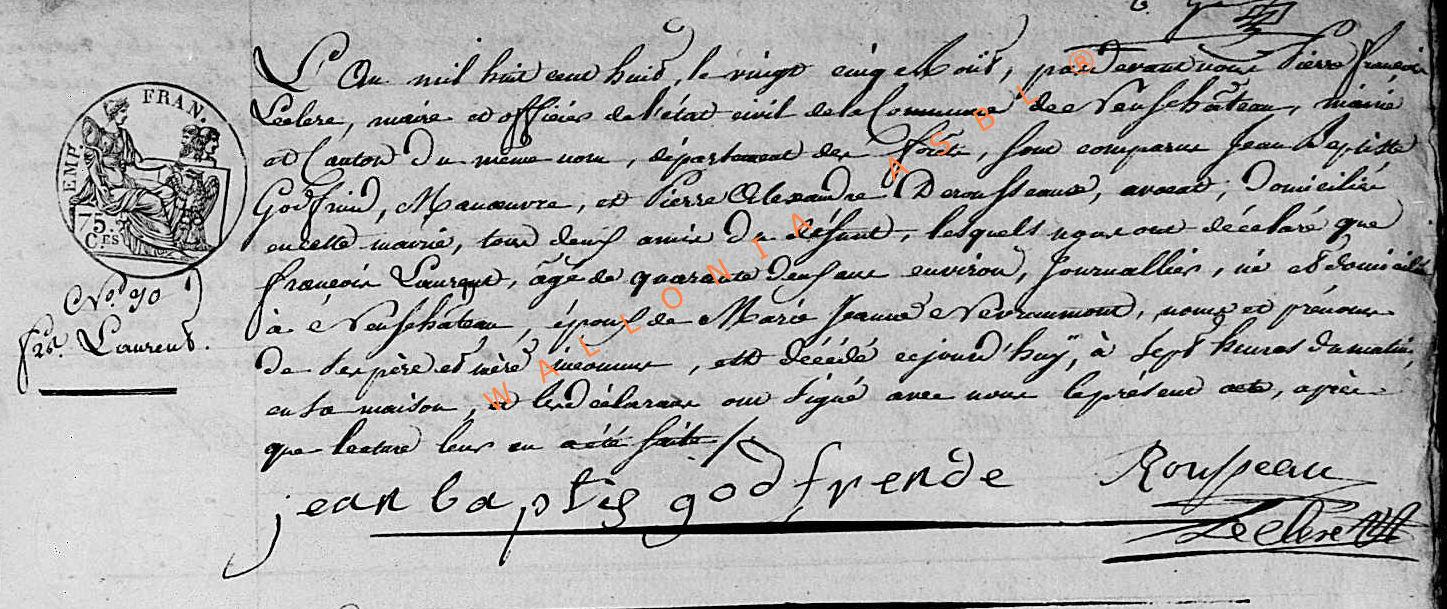 L'An mil huit cent huit, le vingt cinq Août, pardevant nous Pierre françois
Leclerc, maire et officier de l'état civil de la Commune de Neufchâteau, mairie
et Canton du même nom, département des forêts, sont comparus Jean Baptiste
Godfrind, Manœuvre, et Pierre Alexandre Derousseaux, avocat, domiciliés
en cette mairie, tous deux amis du défunt, lesquels nous ont déclaré que
françois Laurent, âgé de quarante deux ans environ, Journallier, né et domicilié
à Neufchâteau, époux de Marie Jeanne Nevraumont, noms et prénoms
de ses père et mère inconnus, est décédé cejourd'huy, à sept heures du matin,
en sa maison, et les déclarans ont signé avec nous le présent acte, après
que lecture leur en a été faite /.
jean baptis godfrende
Rousseau
Leclerc
EMP. FRAN.
75 CES
No. 90
frs. Laurent.
WALLONIA ASBL ®